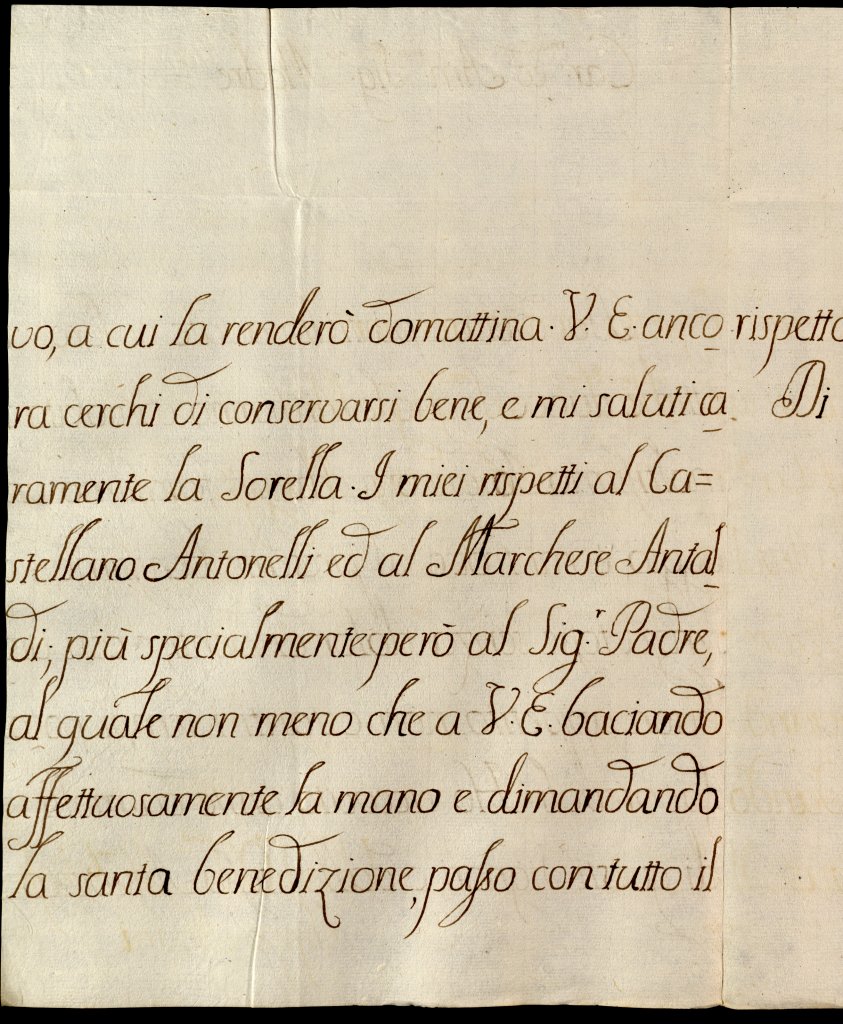 vo, a cui la renderò domattina. V. E. anco
ra cerchi di conservarsi bene, e mi saluti ca
ramente la Sorella. I miei rispetti al Ca=
stellano Antonelli ed al Marchese Antal
di; più specialmente però al Sig.r Padre,
al quale non meno che a V. E. baciando
affettuosamente la mano e dimandando
la santa benedizione, passo con tutto il
rispetto
Di